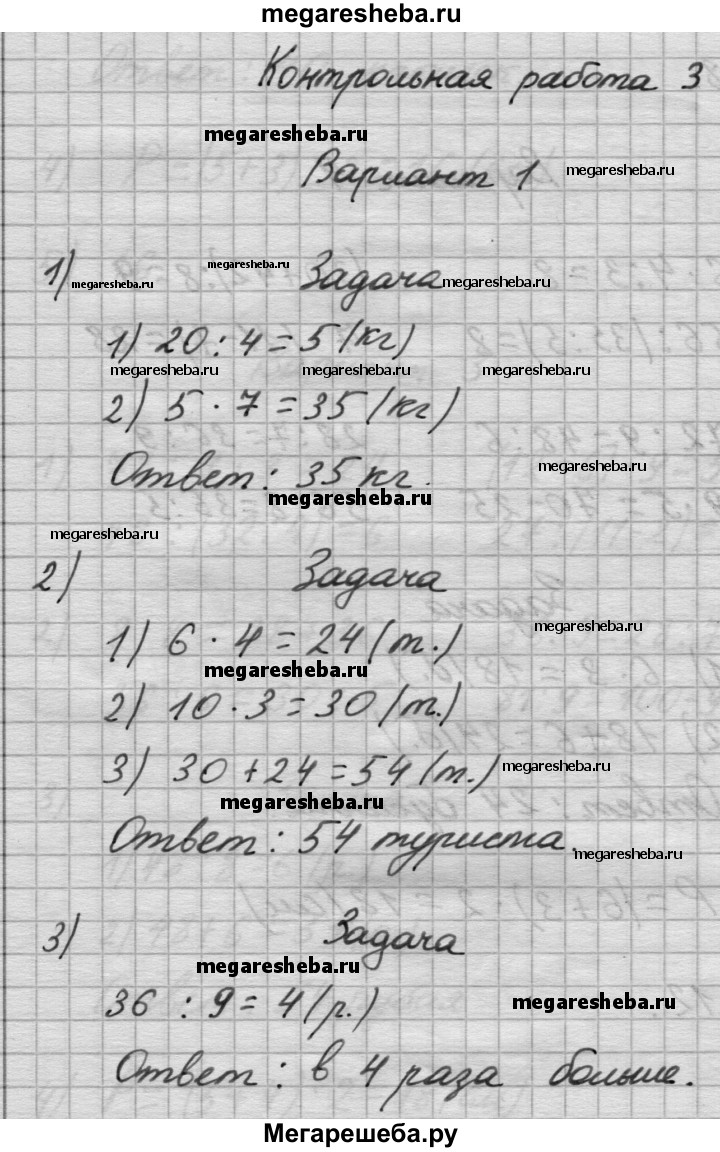 megaresheba.ru
Контрольная работа 3
megaresheba.ru
Вариант 1 megaresheba.ru
1) megaresheba.ru megaresheba.ru Задача megaresheba.ru
1) 20 : 4 = 5 (кг)
megaresheba.ru megaresheba.ru megaresheba.ru
2) 5 · 7 = 35 (кг)
Ответ : 35 кг. megaresheba.ru
megaresheba.ru
megaresheba.ru
2) Задача
1) 6 · 4 = 24 (т.) megaresheba.ru
megaresheba.ru
2) 10 · 3 = 30 (т.)
3) 30 + 24 = 54 (т.) megaresheba.ru
megaresheba.ru
Ответ : 54 туриста. megaresheba.ru
3) Задача
megaresheba.ru
36 : 9 = 4 (р.) megaresheba.ru
Ответ : в 4 раза больше.
Мегарешеба.ру